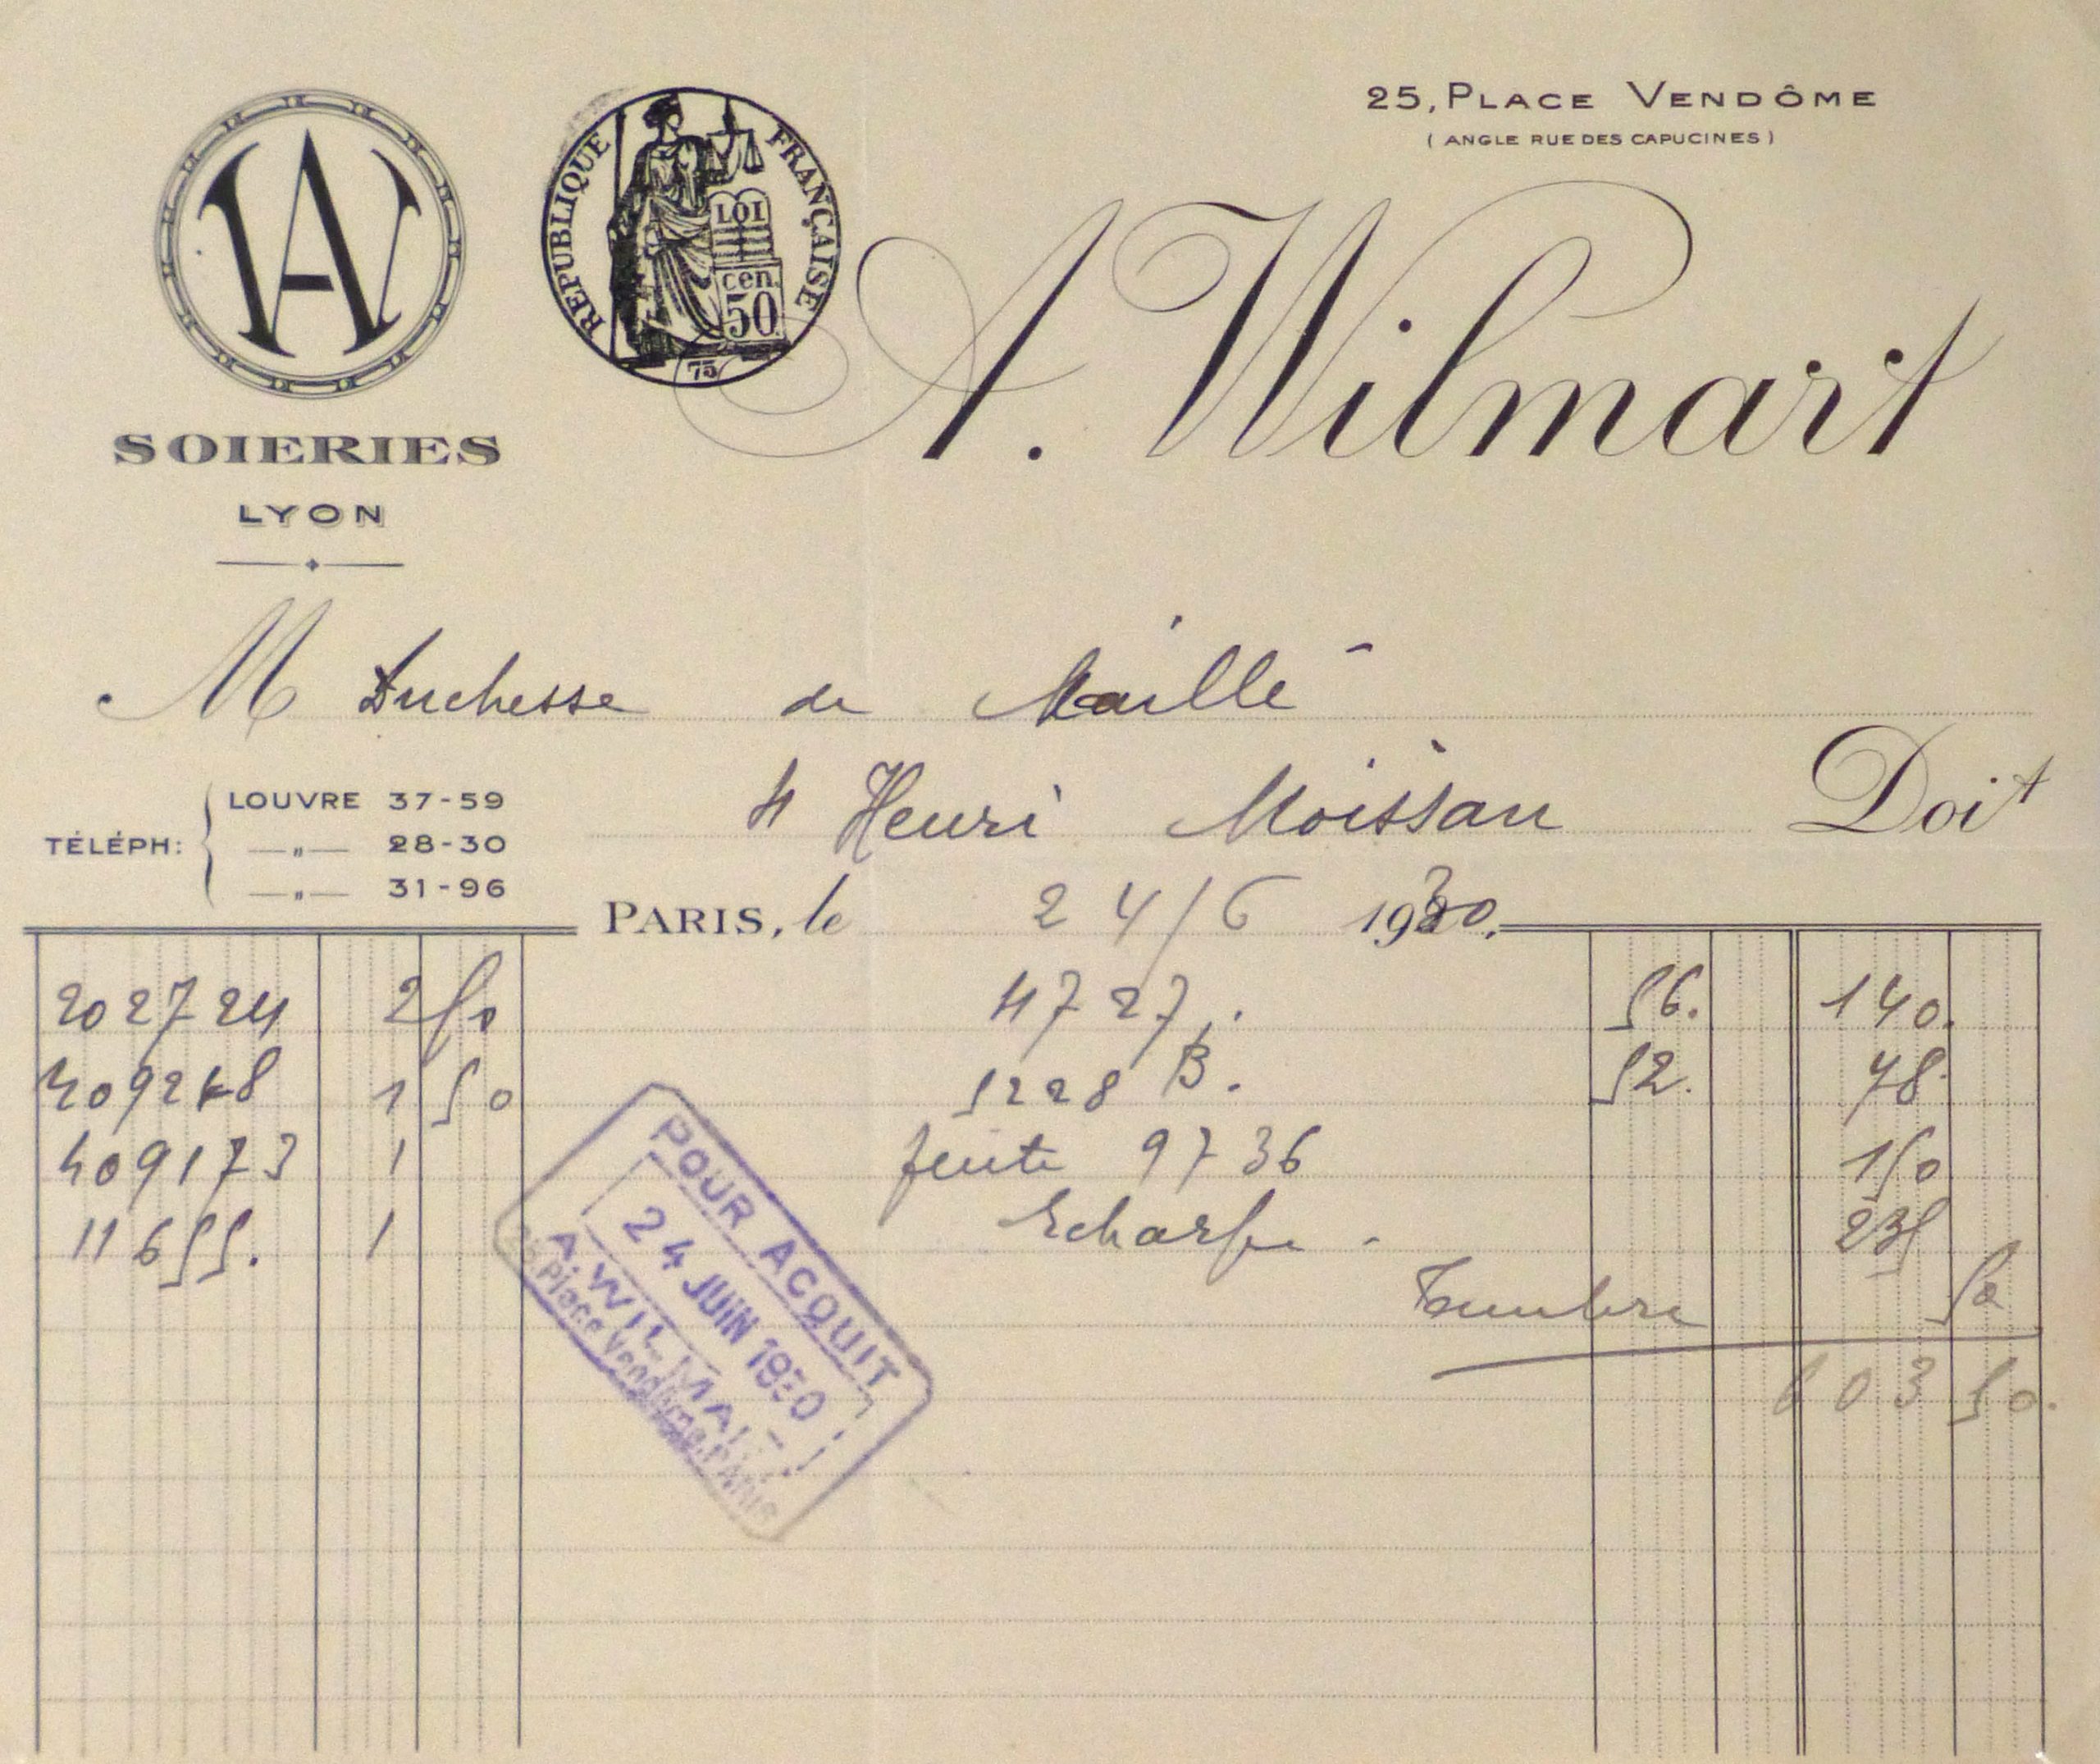 25, PLACE VENDÔME
(ANGLE RUE DES CAPUCINES)
AW
RÉPUBLIQUE FRANÇAISE
LOI
cen.
50
75
A. Wilmart
SOIERIES
LYON
M Duchesse de Maillé
4 Henri Moissan Doit
TÉLÉPH: LOUVRE 37-59
—„— 28-30
—„— 31-96
PARIS, le 24/6 1930.
202724 2 50 4727. 56. 140.
409268 1 50 5228 B. 52. 78.
409173 1 feute 9736 150
11655. 1 Echarpe. 235
Timbre 50
603 50.
POUR ACQUIT
24 JUIN 1930
A. WILMART
25, Place Vendôme, PARIS